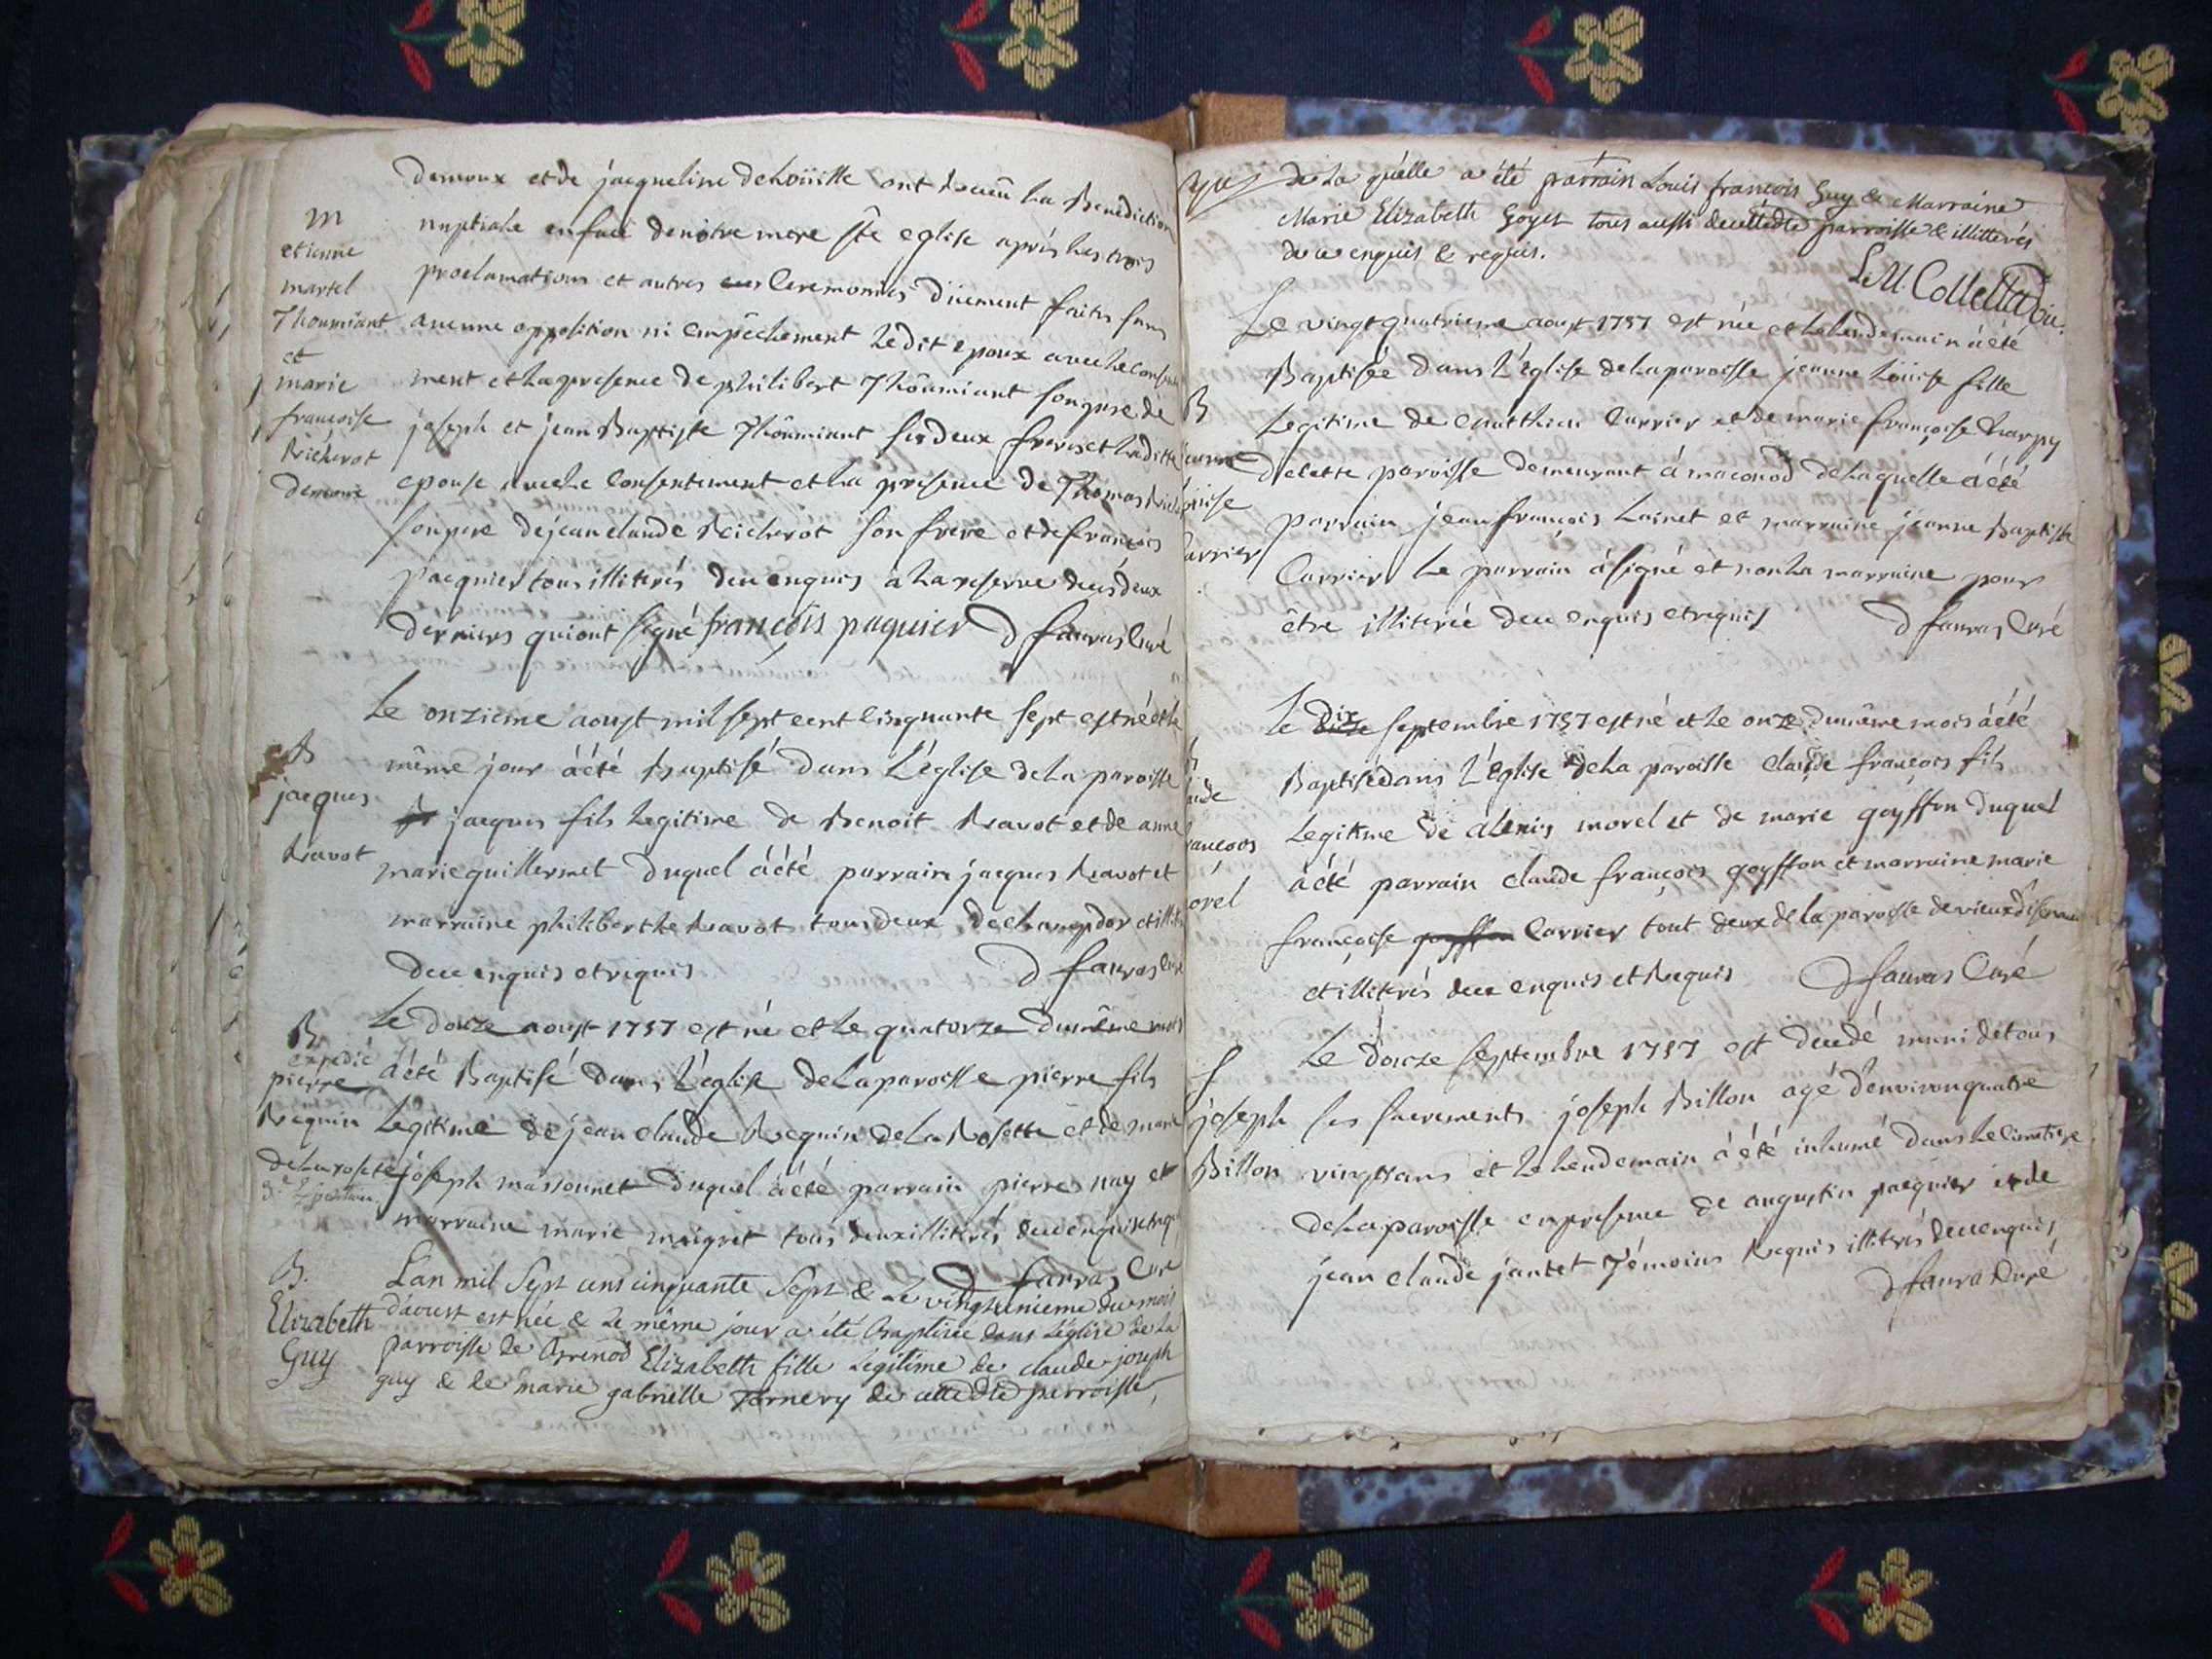 demoux et de jacqueline dehoüille ont Receu La Benediction
M
nuptiale en face de nôtre mere ste eglise aprés Les trois
etienne
martel
proclamations et autres Ceremonies düement faites sans
Thoumiant
aucune opposition ni empêchement Le dit epoux avec Le consente
et
marie
ment et La presence de philibert Thoûmiant son pere de
françoise
joseph et jean Baptiste Thoûmiant ses deux freres et Laditte
Richerot
demoux
epouse avec Le Consentement et La presence de Thomas
son pere de jean claude Richerot son frere et de françois
pacquier tous illiterés de ce enquis a La reserve des deux
derniers qui ont signé françois paquier D fauras Curé
Le onzieme aoust mil sept cent Cinquante sept est né et Le
B
même jour à été Baptisé dans L'église de La paroisse
jacques
jacques fils Legitime de Benoit Ravot et de anne
Ravot
marie guillermet duquel à été parrain jacques Ravot et
marraine philiberthe Ravot tous deux de champdor et
de ce enquis et requis D fauras Curé
Le douze aoust 1757 est né et Le quatorze du même mois
B
expedié
à été Baptisé dans L'église de La paroisse pierre fils
pierre
Requin
Legitime de jean claude Requin de La Rosette et de marie
de La rosete
joseph massonnet duquel à été parrain pierre nay et
marraine marie maigret tous deux illiterés de ce enquis et requis
D fauras Curé
B.
L'an mil Sept cens cinquante Sept & Le vingtunieme du mois
Elizabeth
d'aoust est née & le même jour a été Baptisée dans L'église de La
Guy
parroisse de Brenod Elizabeth fille Legitime de claude joseph
guy & de marie gabrielle Tornery de cette dte parroisse,
de La quélle a été parrain Louis françois Guy & Marraine
Marie Elizabeth Goyet tous aussi de cette dte parroisse & illitterés
de ce enquis & requis.
Le vingt quatrieme aoust 1757 est née et Le Lendemain à été
Baptisée dans L'église de La paroisse jeanne Loüise fille
B
Legitime de Matthieu Carrier et de marie françoise
jeanne
de cette paroisse demeurant à maconod de Laquelle à été
Loüise
parrain jean françois Loinet et marraine jeanne Baptiste
Carrier
Carrier Le parrain à signé et non La marraine pour
être illiterée de ce enquis et requis D fauras Curé
Le dix septembre 1757 est né et Le onze du même mois à été
Baptisé dans L'église de La paroisse claude françois fils
Legitime de alexis morel et de marie goyffon duquel
à été parrain claude françois goyffon et marraine marie
françoise Carrier tout deux de La paroisse de vieux d'isenave
et illiterés de ce enquis et Requis D fauras Curé
Le douze septembre 1757 est decedé muni de tous
joseph
les sacrements joseph Billon agé d'environ quatre
Billon
vingt ans et Le Lendemain à été inhumé dans Le Cimetiere
de La paroisse en presence de augustin pacquier et de
jean claude jantet Témoins Requis illiterés de ce enquis
D fauras Curé